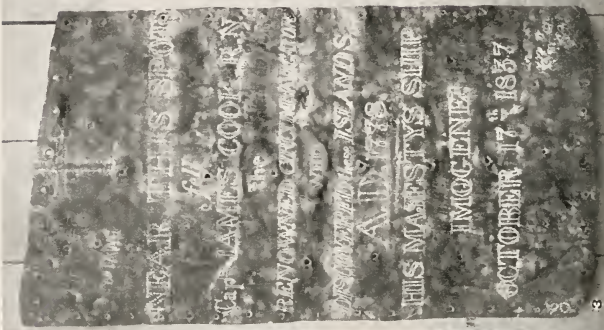 NEAR THIS SPOT
fell
Capt JAMES COOK R.N.
The
RENOWNED CIRCUMNAVIGATOR
WHO
DISCOVERED these ISLANDS
A.D. 1778
HIS MAJESTYS SHIP
IMOGENE
OCTOBER 17th 1837